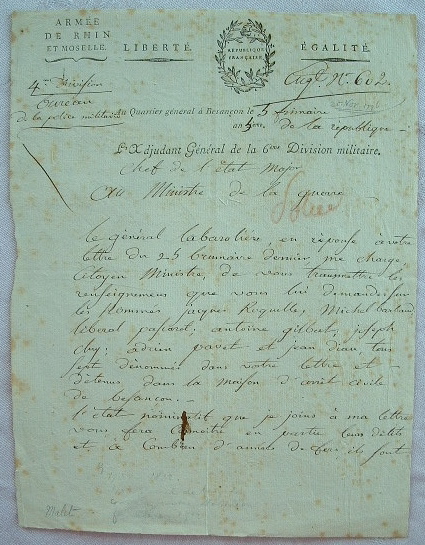 ARMÉE
DE RHIN
ET MOSELLE.
LIBERTÉ.
RÉPUBLIQUE
FRANÇAISE
ÉGALITÉ.
4me Division
Bureau
de la police militaire
N° 602
Au Quartier général à Besançon le 5 frimaire
an 5ème. de la république
L'Adjudant Général de la 6ème Division militaire.
Chef de l'état Major
Au Ministre de la guerre
Le général Labarolière, en réponse à votre
lettre du 25 brumaire dernier, me charge,
Citoyen Ministre, de vous transmettre les
renseignemens que vous lui demandés sur
les nommés jacques Roquelle, Michel
antoine gilbert, joseph
adrien pavet et jean diau, tous
sept dénommés dans votre lettre et
détenus dans la Maison d'arrêt civile
de besançon.
L'état nominatif que je joins à ma lettre
vous fera connaître en partie leurs délits
et à Combien d'années de fers ils sont
Malet